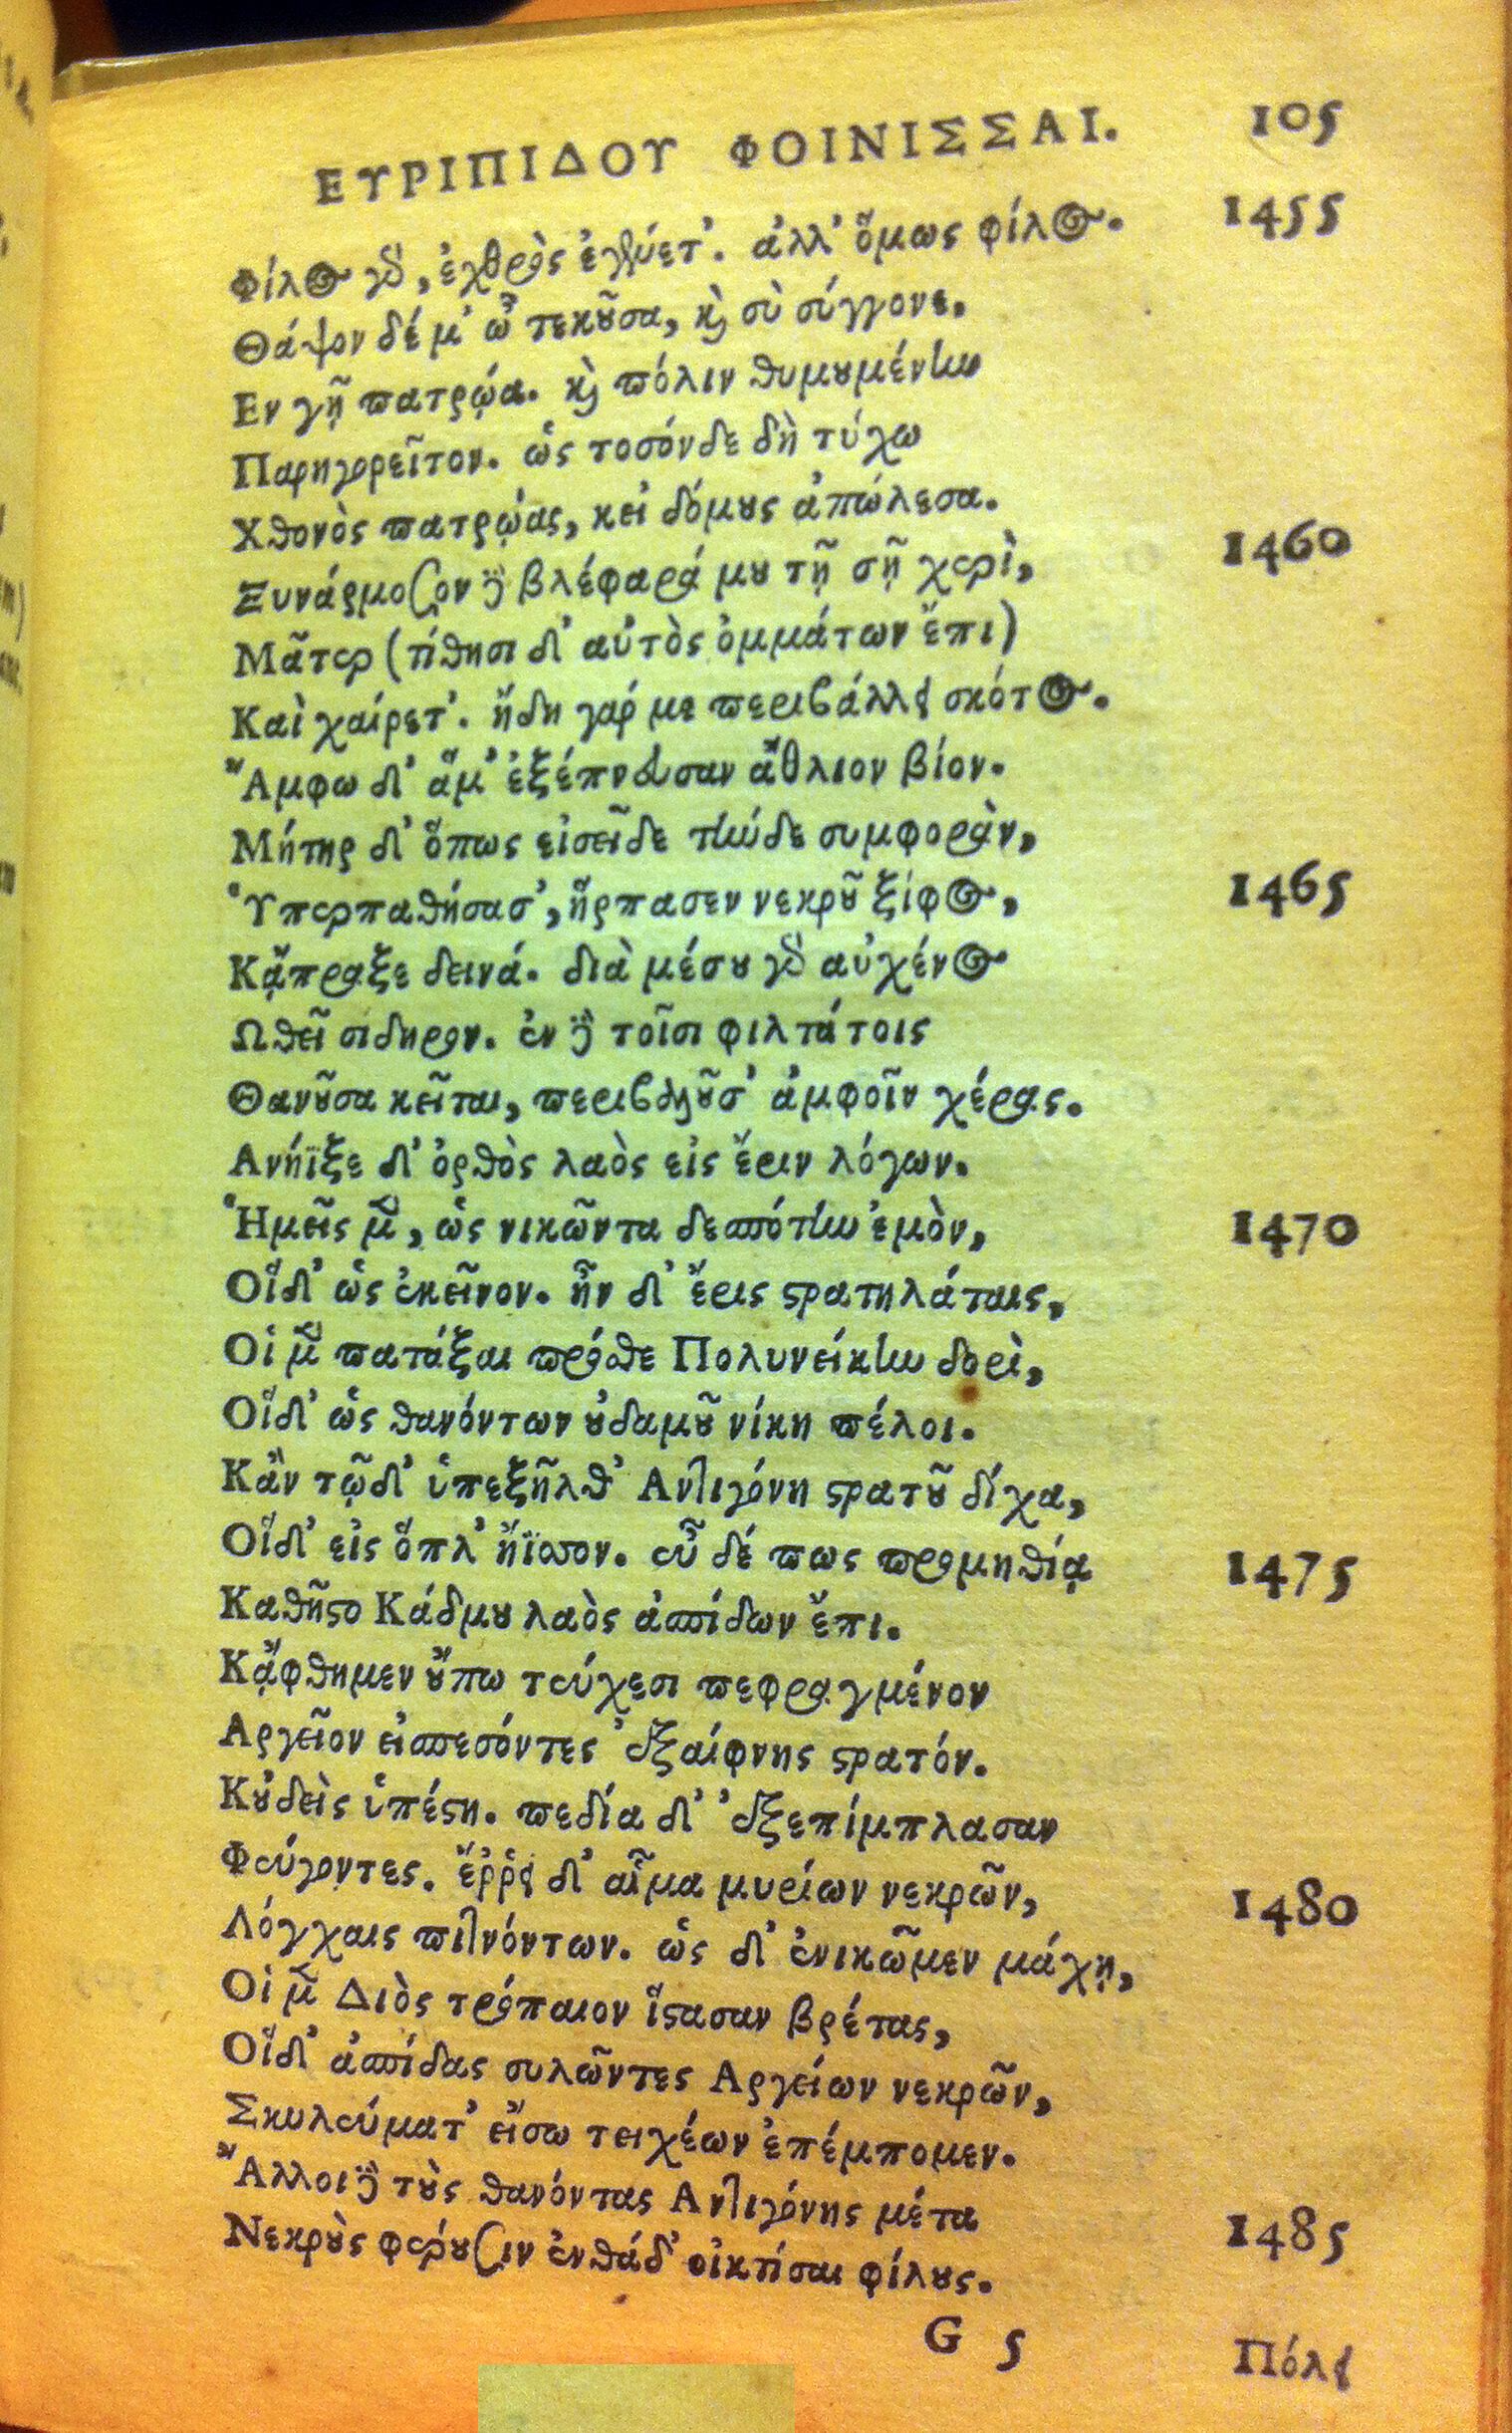 ΕΥΡΙΠΙΔΟΥ ΦΟΙΝΙΣΣΑΙ. 105
Φίλος γδ, ἐχθρὸς ἐγένετ'. ἀλλ' ὅμως φίλος. 1455
Θάψον δέ μ' ὦ τεκοῦσα, καὶ σὺ σύγγονε,
Εν γῇ πατρῴα. καὶ πόλιν θυμουμένην
Παρηγορεῖτον. ὡς τοσόνδε δὴ τύχω
Χθονὸς πατρῴας, κεἰ δόμους ἀπώλεσα.
Ξυνάρμοζον δὲ βλέφαρά μου τῇ σῇ χερὶ, 1460
Μᾶτερ (τίθησι δ' αὐτὸς ὀμμάτων ἔπι)
Καὶ χαίρετ'. ἤδη γάρ με περιβάλλει σκότος.
Ἄμφω δ' ἅμ' ἐξέπνευσαν ἄθλιον βίον.
Μήτηρ δ' ὅπως εἰσεῖδε τήνδε συμφορὰν,
Ὑπερπαθήσασ', ἥρπασεν νεκροῦ ξίφος, 1465
Κᾄπραξε δεινά. διὰ μέσου γδ αὐχένος
Ωθεῖ σίδηρον. ἐν δὲ τοῖσι φιλτάτοις
Θανοῦσα κεῖται, περιβαλοῦσ' ἀμφοῖν χέρας.
Ανήϊξε δ' ὀρθὸς λαὸς εἰς ἔριν λόγων.
Ἡμεῖς μὲν, ὡς νικῶντα δεσπότην ἐμὸν, 1470
Οἵδ' ὡς ἐκεῖνον. ἦν δ' ἔρις στρατηλάταις,
Οἱ μὲν πατάξαι πρόσθε Πολυνείκην δορὶ,
Οἵδ' ὡς θανόντων οὐδαμοῦ νίκη πέλοι.
Κἂν τῷδ' ὑπεξῆλθ' Αντιγόνη στρατοῦ δίχα,
Οἵδ' εἰς ὅπλ' ἤϊσσον. εὖ δέ πως προμηθίᾳ 1475
Καθῆστο Κάδμου λαὸς ἀσπίδων ἔπι.
Κᾄφθημεν οὔπω τεύχεσι πεφραγμένον
Αργεῖον εἰσπεσόντες ἐξαίφνης στρατόν.
Κοὐδεὶς ὑπέστη. πεδία δ' ἐξεπίμπλασαν
Φεύγοντες. ἔῤῥει δ' αἷμα μυρίων νεκρῶν, 1480
Λόγχαις πιτνόντων. ὡς δ' ἐνικῶμεν μάχῃ,
Οἱ μὲν Διὸς τρόπαιον ἵστασαν βρέτας,
Οἵδ' ἀσπίδας συλῶντες Αργείων νεκρῶν,
Σκυλεύματ' εἴσω τειχέων ἐπέμπομεν.
Ἄλλοι δὲ τοὺς θανόντας Αντιγόνης μέτα 1485
Νεκροὺς φέρουσιν ἐνθάδ' οἰκτίσαι φίλους.
G 5 Πόλει